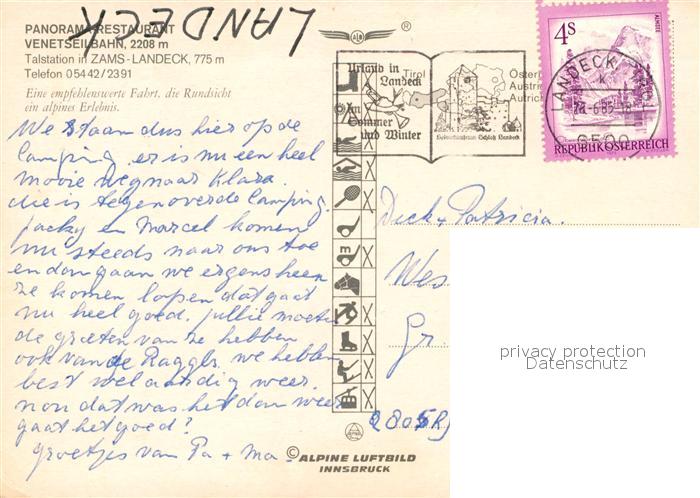 LANDECK
PANORAMA-RESTAURANT
VENETSEILBAHN, 2208 m
Talstation in ZAMS-LANDECK, 775 m
Telefon 05442/2391
Eine empfehlenswerte Fahrt, die Rundsicht
ein alpines Erlebnis.
We staan dus hier op de
Camping. er is nu een heel
mooie weg naar Klara.
die is tegenover de Camping.
Jacky en Marcel komen
nu steeds naar ons toe
en dan gaan we ergens heen
ze komen lopen dat gaat
nu heel goed. jullie moeten
de groeten van ze hebben
ook van de Raggls. we hebben
best wel aardig weer.
non dat was het dan weer
gaat het goed?
groetjes van Pa + Ma
Urlaub in
Tirol
Landeck
Im
Sommer
und Winter
Heimatmuseum Schloß Landeck
Öster
Austri
Autric
4S
ALMSEE
REPUBLIK ÖSTERREICH
LANDECK
k
-6.85-18
6500
Dick + Patricia.
Wes
Gr
2805RJ
privacy protection
Datenschutz
© ALPINE LUFTBILD
INNSBRUCK